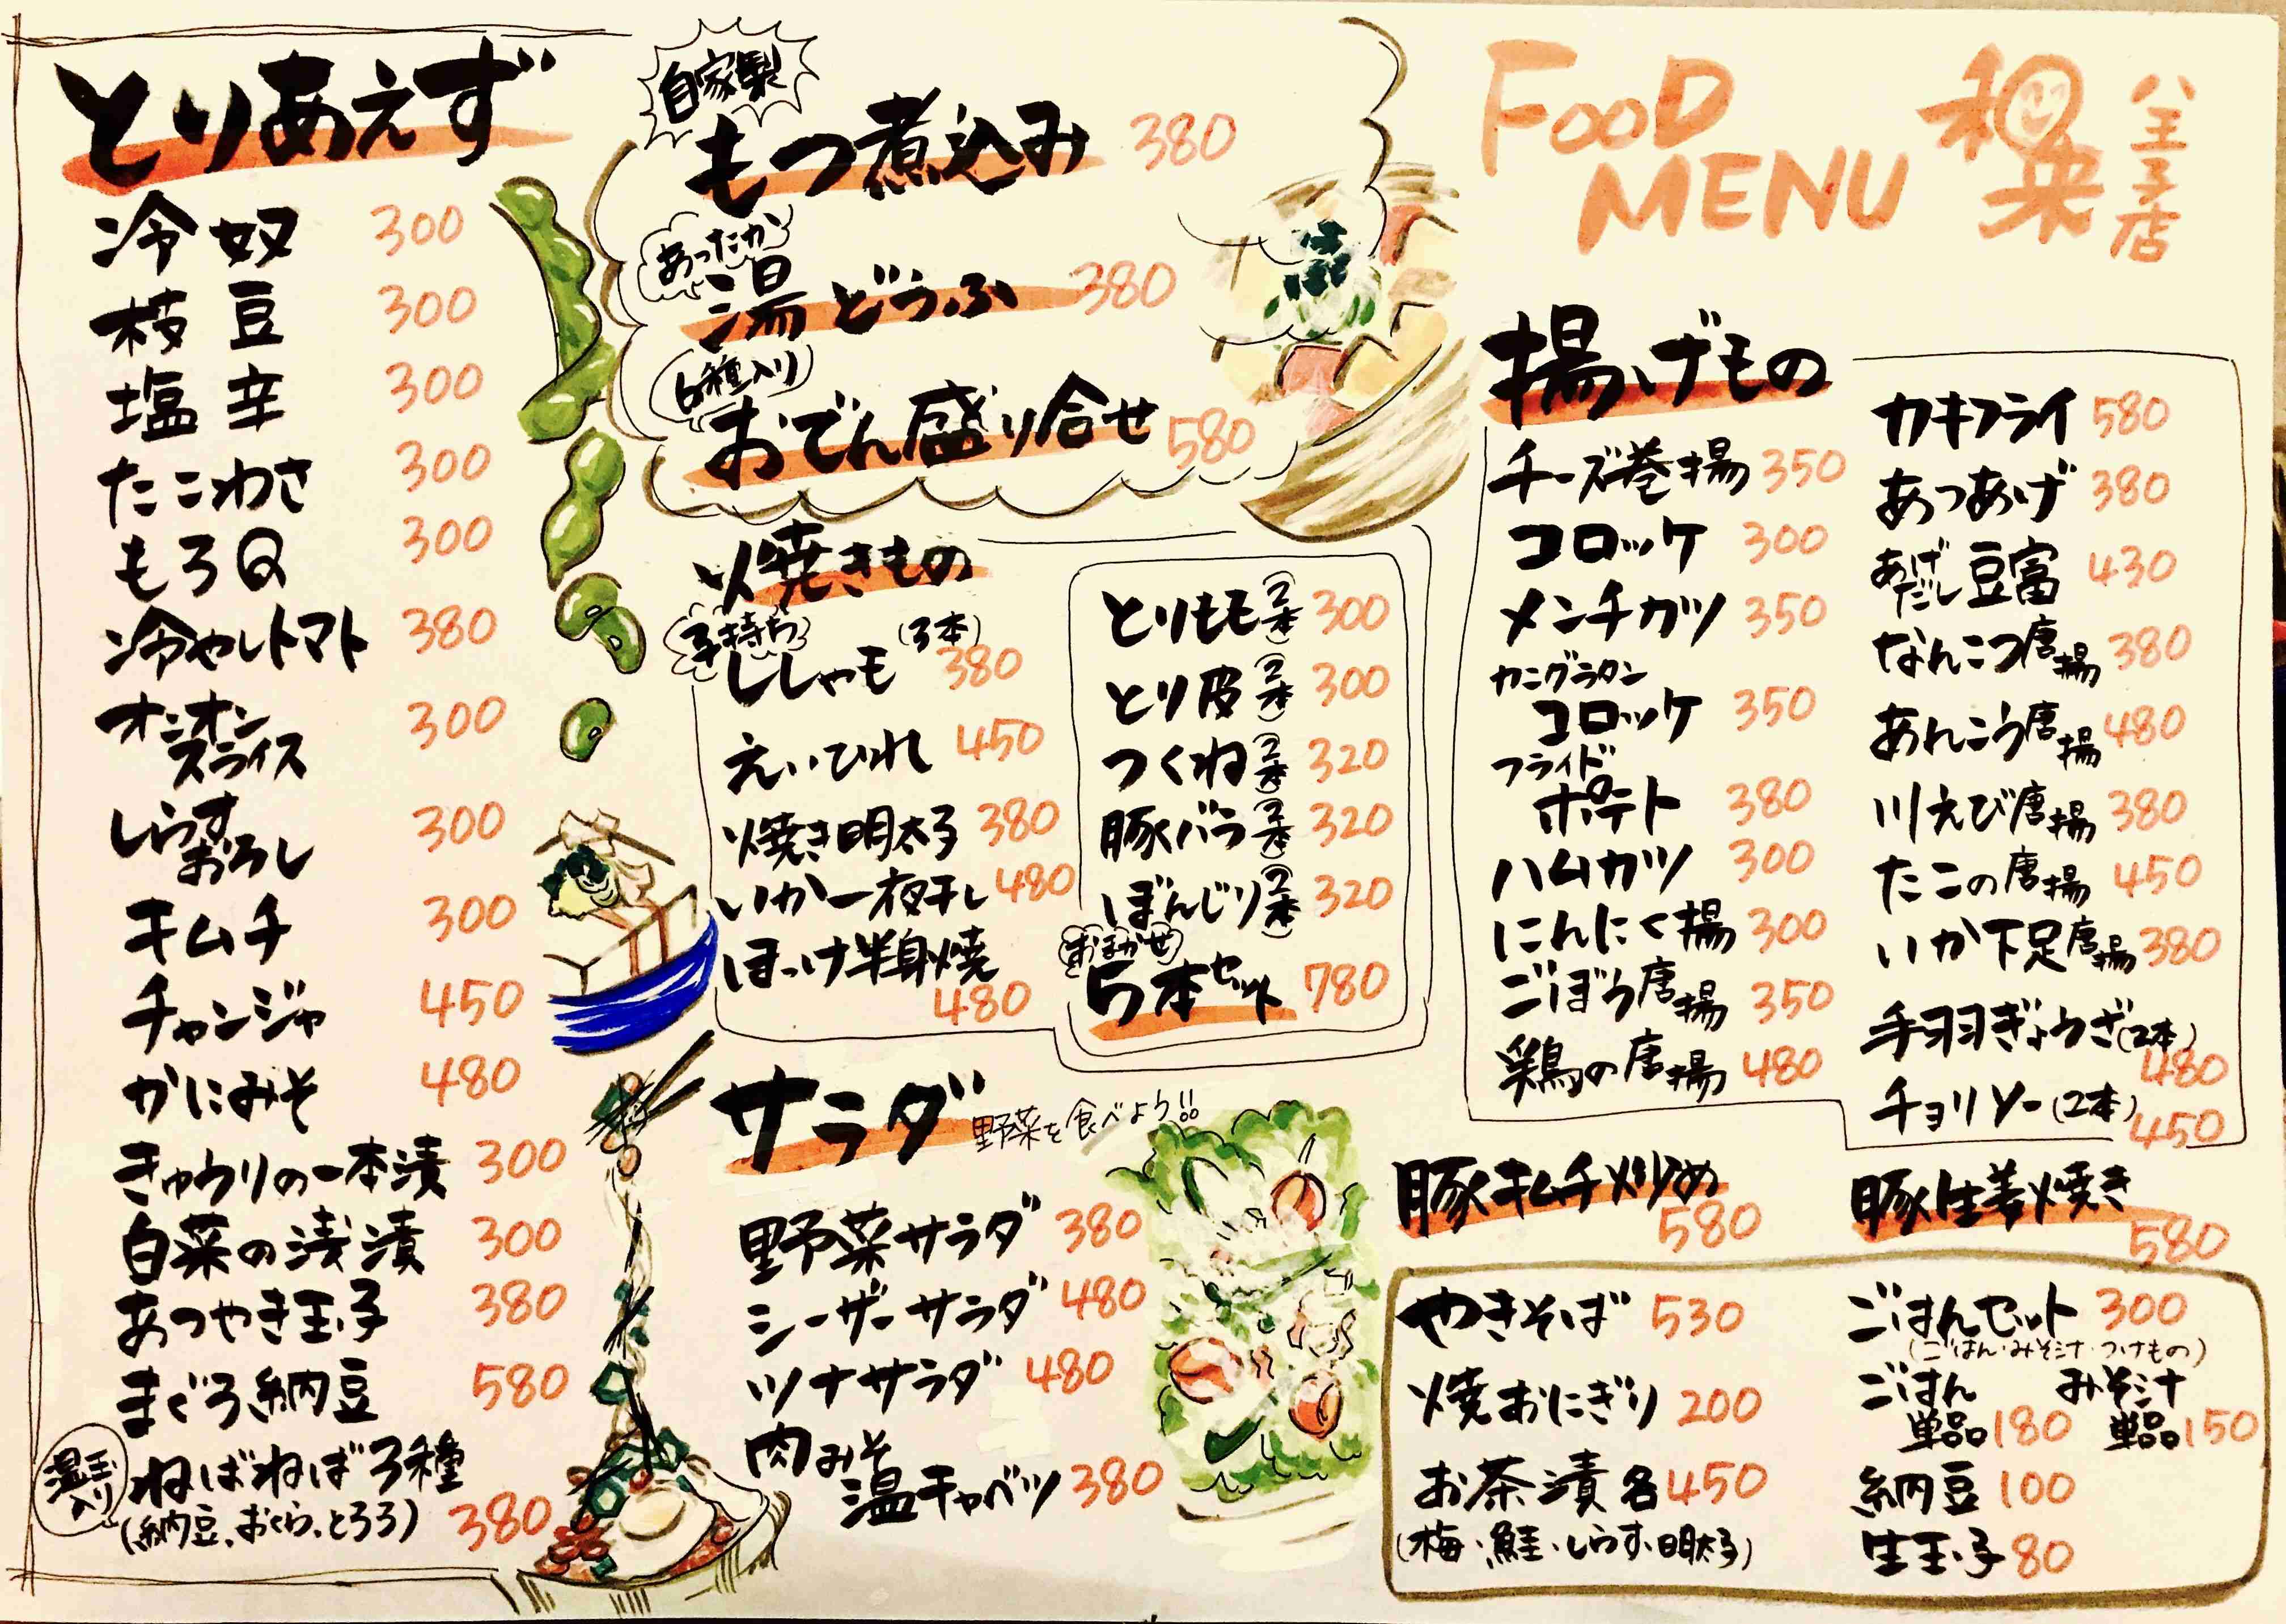 とりあえず
冷奴 300
枝豆 300
塩辛 300
たこわさ 300
もろQ 300
冷やしトマト 380
オニオン
スライス 300
しらす
おろし 300
キムチ 300
チャンジャ 450
かにみそ 480
きゅうりの一本漬 300
白菜の浅漬 300
あつやき玉子 380
まぐろ納豆 580
温玉入り
ねばねば3種
(納豆、おくら、とろろ) 380
自家製
もつ煮込み 380
あったか
湯どうふ 380
6種入り
おでん盛り合せ 580
焼きもの
子持ち
ししゃも (3本) 380
えいひれ 450
焼き明太子 380
いか一夜干し 480
ほっけ半身焼 480
とりもも(2本) 300
とり皮(2本) 300
つくね(2本) 320
豚バラ(2本) 320
ぼんじり(2本) 320
おまかせ
5本セット 780
サラダ 野菜を食べよう!!
野菜サラダ 380
シーザーサラダ 480
ツナサラダ 480
肉みそ
温キャベツ 380
FOOD
MENU
和来 八王子店
揚げもの
チーズ巻揚 350
コロッケ 300
メンチカツ 350
カニグラタン
コロッケ 350
フライド
ポテト 380
ハムカツ 300
にんにく揚 300
ごぼう唐揚 350
鶏の唐揚 480
カキフライ 580
あつあげ 380
あげだし豆富 430
なんこつ唐揚 380
あんこう唐揚 480
川えび唐揚 380
たこの唐揚 450
いか下足唐揚 380
手羽ぎょうざ(2本) 480
チョリソー(2本) 450
豚キムチ炒め 580
豚生姜焼き 580
やきそば 530
焼おにぎり 200
お茶漬 各450
(梅・鮭・しらす・明太子)
ごはんセット 300
(ごはん・みそ汁・つけもの)
ごはん
単品 180
みそ汁
単品 150
納豆 100
生玉子 80